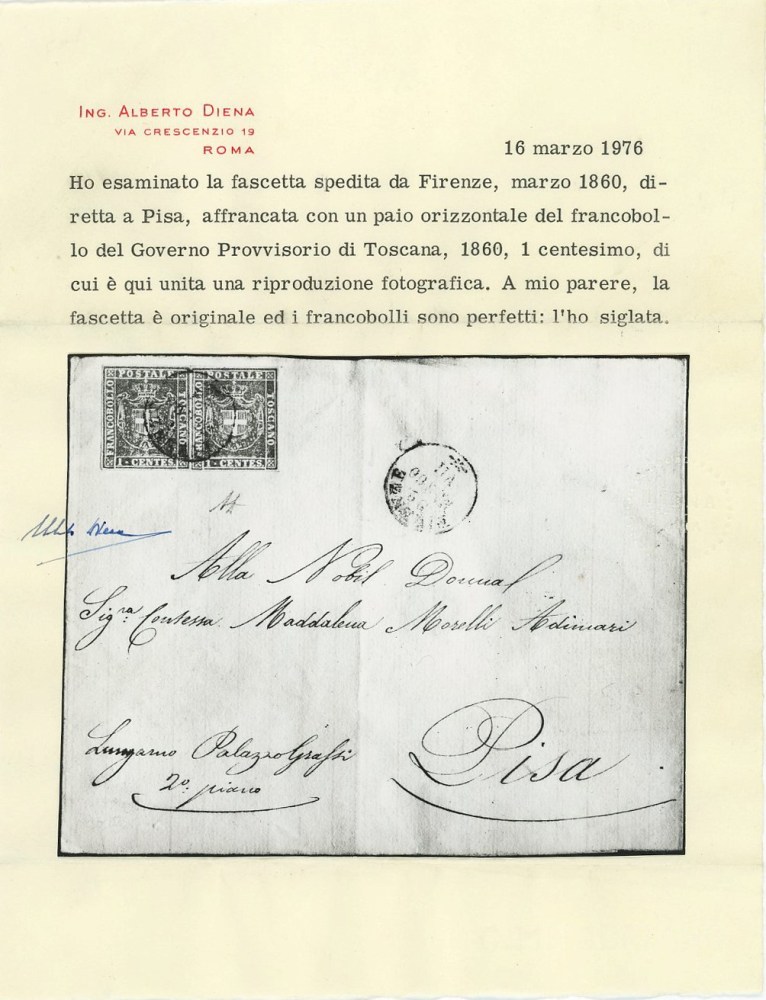 ING. ALBERTO DIENA
VIA CRESCENZIO 19
ROMA
16 marzo 1976
Ho esaminato la fascetta spedita da Firenze, marzo 1860, di-
retta a Pisa, affrancata con un paio orizzontale del francobol-
lo del Governo Provvisorio di Toscana, 1860, 1 centesimo, di
cui è qui unita una riproduzione fotografica. A mio parere, la
fascetta è originale ed i francobolli sono perfetti: l'ho siglata.
FRANCOBOLLO POSTALE TOSCANO 1 · CENTES.
FRANCOBOLLO POSTALE TOSCANO 1 · CENTES.
Alla Nobil Donna
Sigra: Contessa Maddalena Morelli Adimari
Lungarno Palazzo Grassi
2o. piano
Pisa